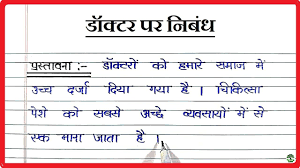 डॉक्टर पर निबंध
प्रस्तावना :- डॉक्टरों को हमारे समाज में
उच्च दर्जा दिया गया है। चिकित्सा
पेशे को सबसे अच्छे व्यवसायों में से
एक माना जाता है।